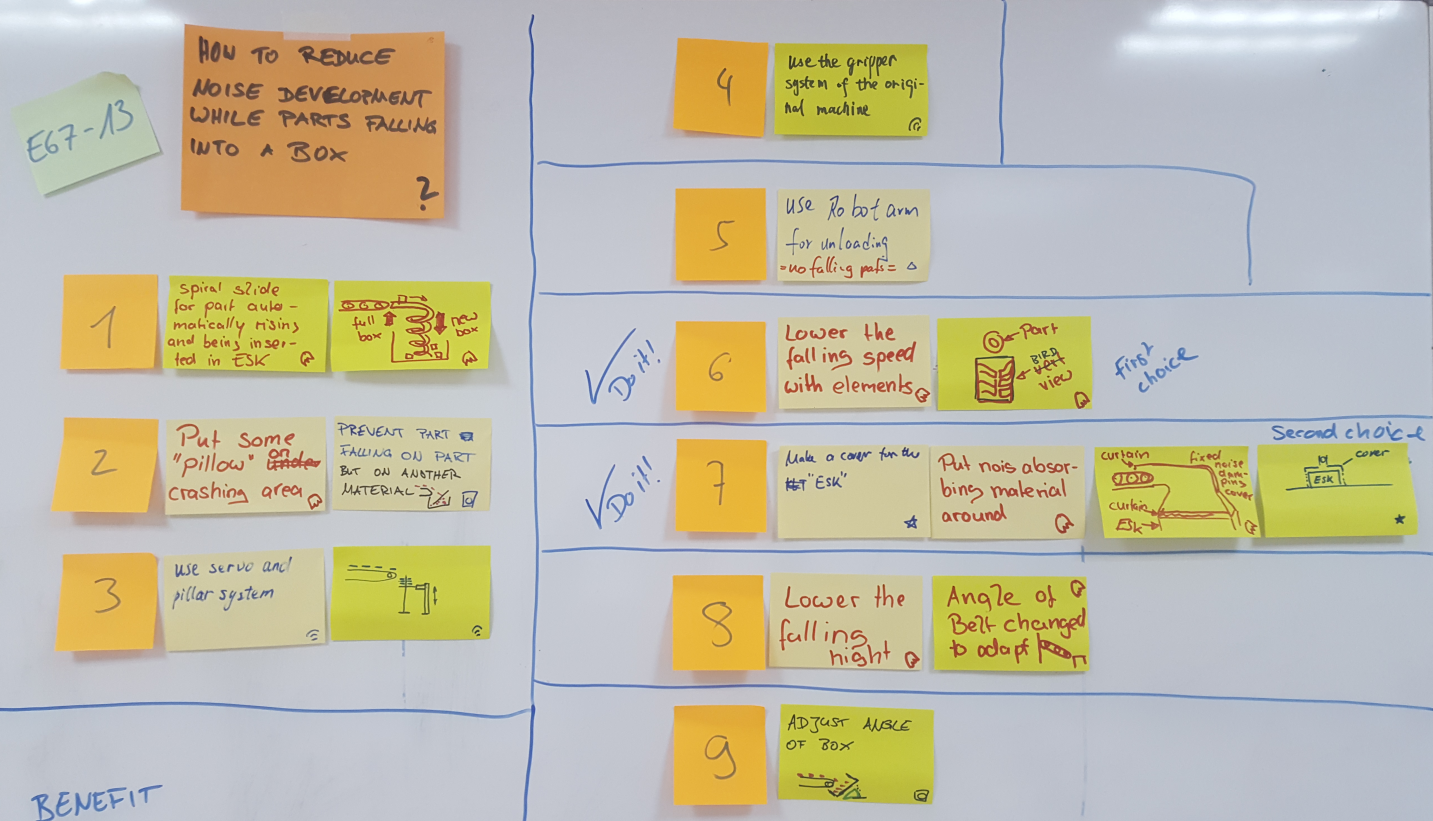 E67-13
HOW TO REDUCE
NOISE DEVELOPMENT
WHILE PARTS FALLING
INTO A BOX
?
1
spiral slide
for part auto-
matically rising
and being inser-
ted in ESK
full
box
new
box
2
Put some
"pillow" on
crashing area
PREVENT PART
FALLING ON PART
BUT ON ANOTHER
MATERIAL
3
use servo and
pillar system
BENEFIT
4
use the gripper
system of the origi-
nal machine
5
use Robot arm
for unloading
=no falling parts=
Do it!
6
Lower the
falling speed
with elements
Part
BIRD
view
first
choice
Second choice
Do it!
7
Make a cover for the
"ESK"
Put nois absor-
bing material
around
curtain
fixed
noise
dam-
ping
cover
curtain
ESK
cover
ESK
8
Lower the
falling
hight
Angle of
Belt changed
to adapt
9
ADJUST ANGLE
OF BOX